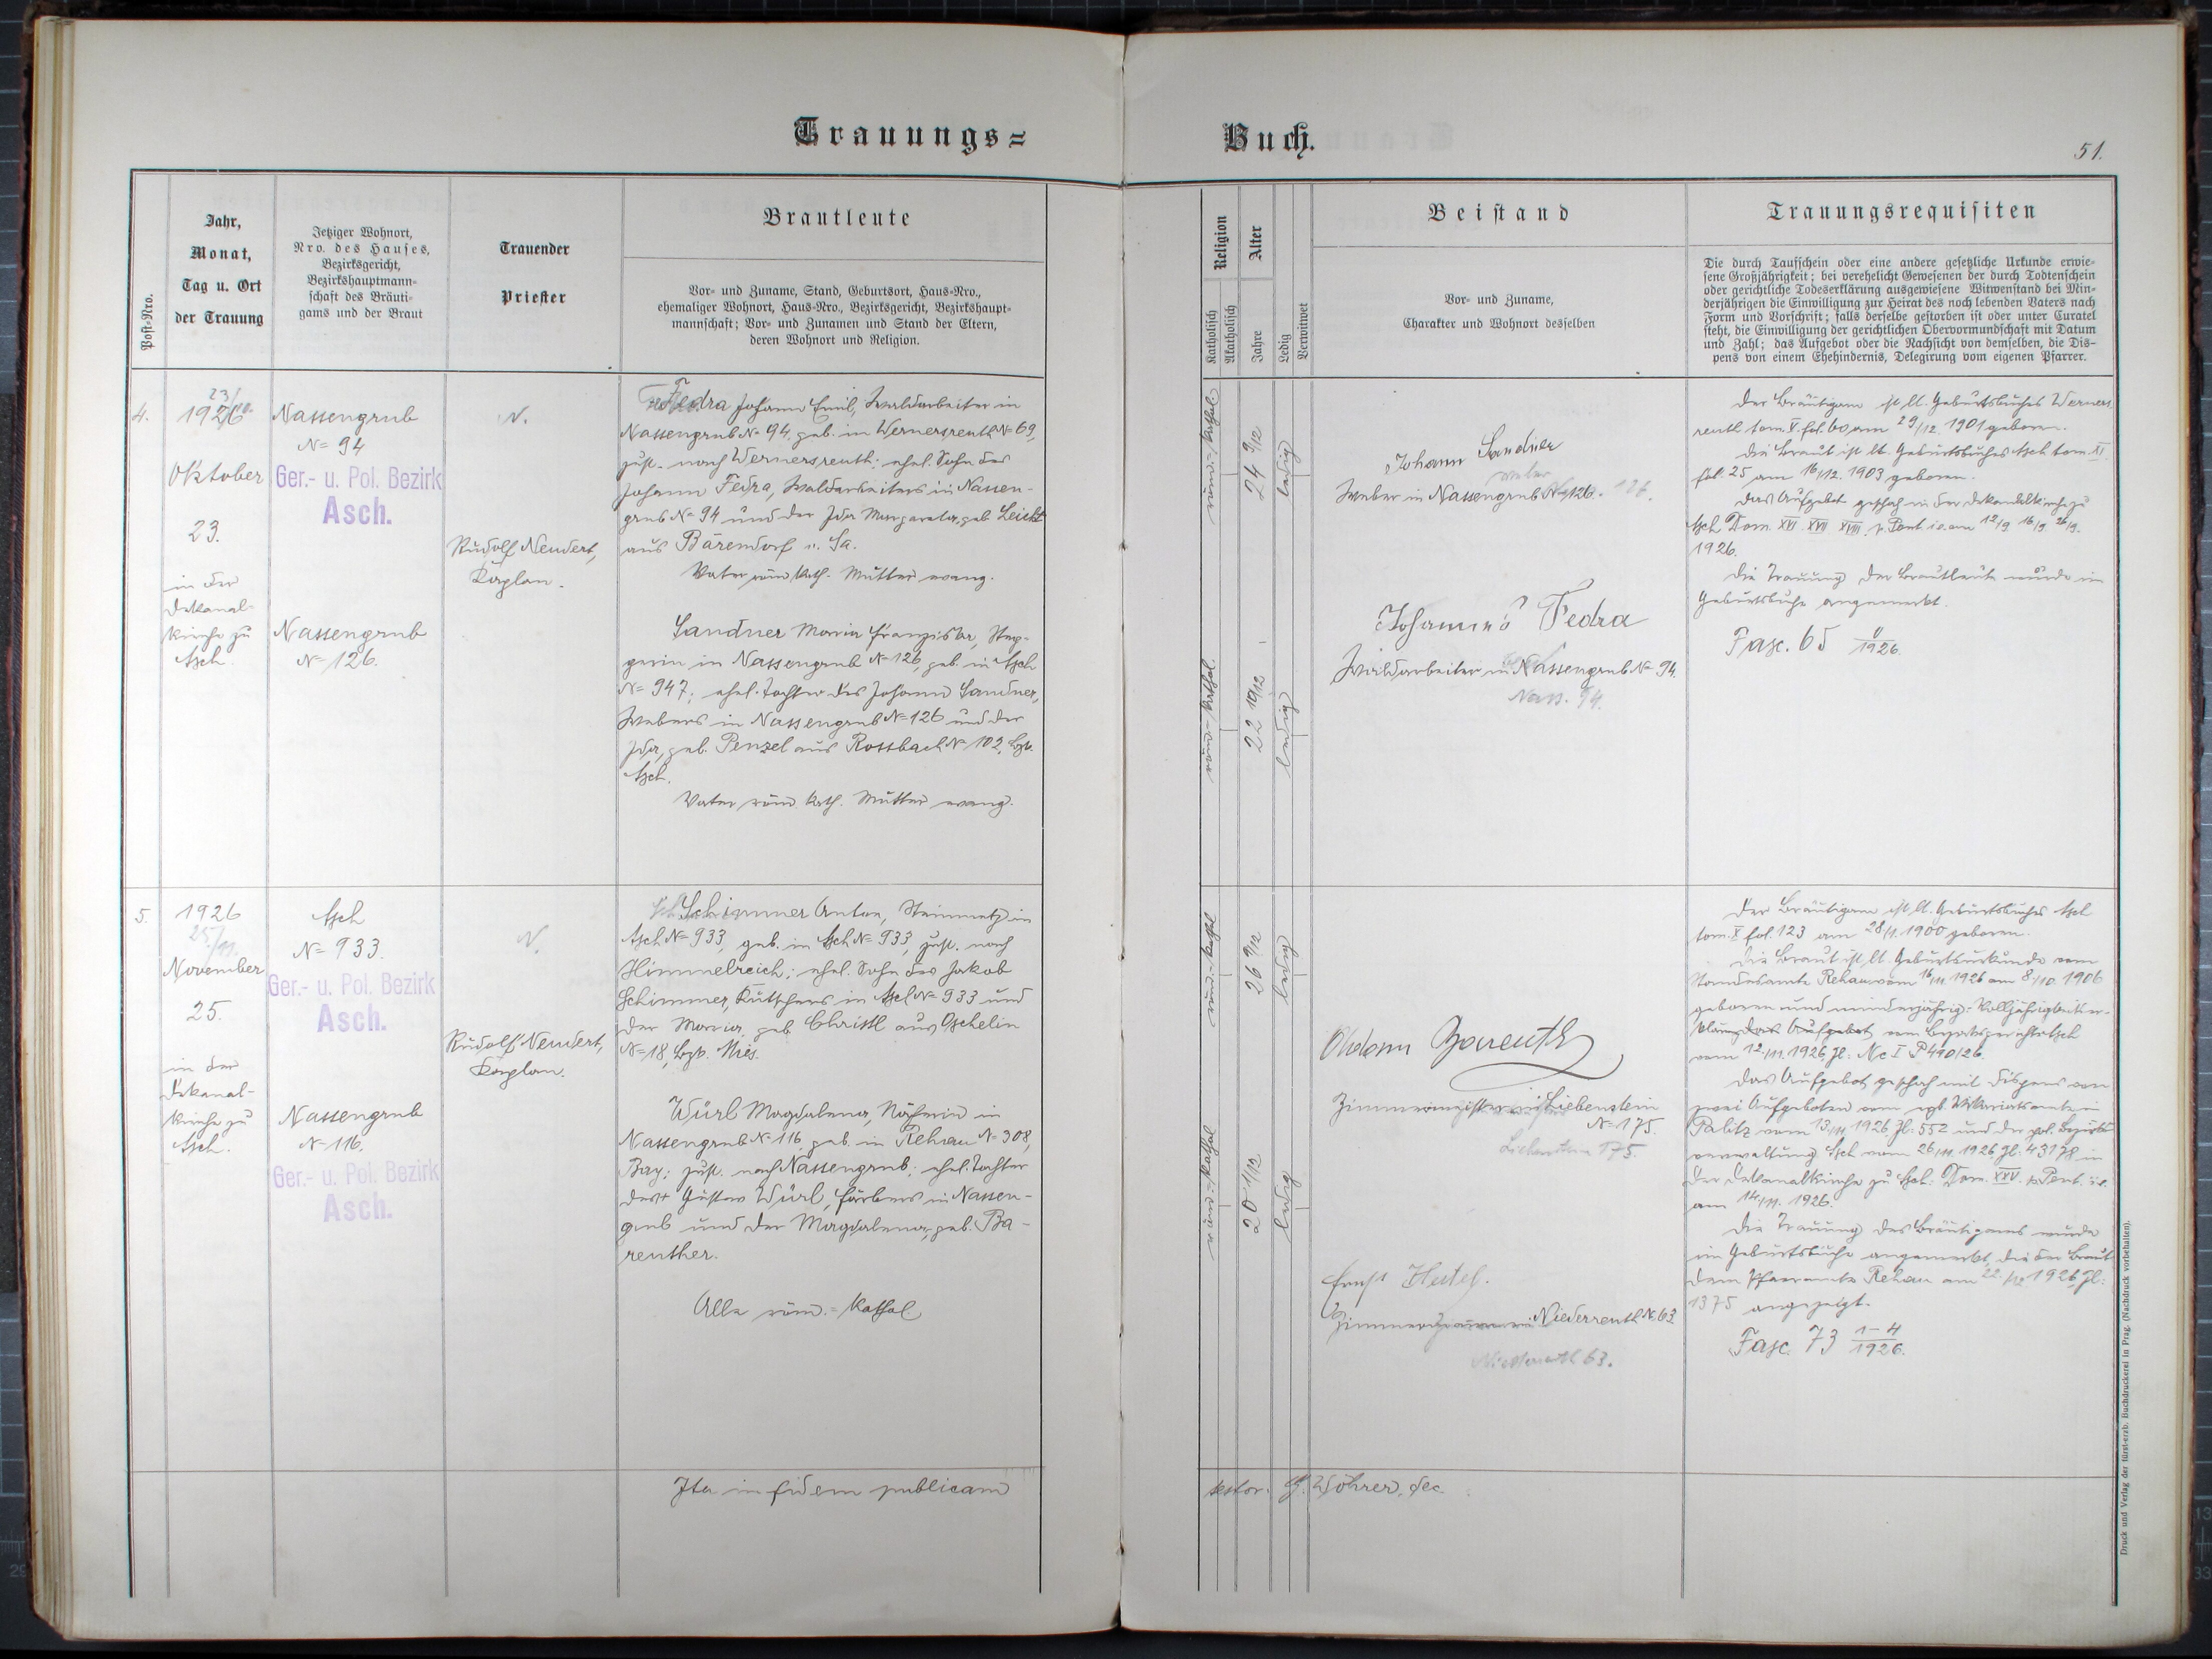 Trauungs=
Buch.
51.
Post-Nro.
Jahr,
Monat,
Tag u. Ort
der Trauung
Jetziger Wohnort,
Nro. des Hauses,
Bezirksgericht,
Bezirkshauptmann-
schaft des Bräuti-
gams und der Braut
Trauender
Priester
Brautleute
Vor- und Zuname, Stand, Geburtsort, Haus-Nro.,
ehemaliger Wohnort, Haus-Nro., Bezirksgericht, Bezirkshaupt-
mannschaft; Vor- und Zunamen und Stand der Eltern,
deren Wohnort und Religion.
Religion
Katholisch
Akatholisch
Alter
Jahre
Ledig
Verwitwet
Beistand
Vor- und Zuname,
Charakter und Wohnort desselben
Trauungsrequisiten
Die durch Taufschein oder eine andere gesetzliche Urkunde erwie-
sene Großjährigkeit; bei verehelicht Gewesenen der durch Todtenschein
oder gerichtliche Todeserklärung ausgewiesene Witwenstand bei Min-
derjährigen die Einwilligung zur Heirat des noch lebenden Vaters nach
Form und Vorschrift; falls derselbe gestorben ist oder unter Curatel
steht, die Einwilligung der gerichtlichen Obervormundschaft mit Datum
und Zahl; das Aufgebot oder die Nachsicht von demselben, die Dis-
pens von einem Ehehindernis, Delegirung vom eigenen Pfarrer.
4.
1926
Oktober
23.
in der
Dekanal-
kirche zu
Asch.
Nassengrub
N= 94
Ger.- u. Pol. Bezirk
Asch.
Nassengrub
N= 126.
N.
Rudolf Neudert,
Kaplan.
Fedra Johann Emil, Waldarbeiter in
Nassengrub N= 94, geb. in Wernersreuth N= 69,
zust. nach Wernersreuth; ehel. Sohn des
Johann Fedra, Waldarbeiters in Nassen-
grub N= 94 und der Ida Margareta, geb. Leicht
aus Bärendorf i. Sa.
Vater röm. kath. Mutter evang.
Sandner Maria Franziska,
in Nassengrub N= 126, geb. in Asch
N= 947; ehel. Tochter des Johann Sandner,
Webers in Nassengrub N= 126 und der
Ida, geb. Penzel aus Rossbach N= 102, Bzk.
Asch.
Vater röm. kath. Mutter evang.
röm.-kathol
24 9/12
ledig
röm.-kathol.
22 10/12
ledig
Johann Sandner
Weber in Nassengrub N= 126.
Johann Fedra
Waldarbeiter in Nassengrub N= 94.
Nass. 94.
Der Bräutigam ist lt. Geburtsbuches Werners-
reuth tom. V. fol. 60, am 29/12. 1901 geboren.
Die Braut ist lt. Geburtsbuches Asch tom. XI.
fol. 25 am 16/12. 1903 geboren.
Das Aufgebot geschah in der Dekanalkirche zu
Asch Dom. XVI. XVII XVIII. p. Pent. i.e. am 12/9 16/9 26/9.
1926.
Die Trauung der Brautleute wurde im
Geburtsbuche angemerkt.
Fasc. 65 /1926.
5.
1926
25/11.
November
25.
in der
Dekanal-
kirche zu
Asch.
Asch
N= 933.
Ger.- u. Pol. Bezirk
Asch.
Nassengrub
N= 116.
Ger.- u. Pol. Bezirk
Asch.
N.
Rudolf Neudert,
Kaplan.
Schimmer Anton, Steinmetz in
Asch N= 933, geb. in Asch N= 933, zust. nach
Himmelreich; ehel. Sohn des Jakob
Schimmer, Kutschers in Asch N= 933 und
der Maria, geb. Christl aus Oschelin
N= 18, Bzk. Mies.
Würl Magdalena, Näherin in
Nassengrub N= 116, geb. in Rehau N= 308,
Bay; zust. nach Nassengrub; ehel. Tochter
des + Gustav Würl, Färbers in Nassen-
grub und der Magdalena, geb. Ba-
reuther.
Alle röm.-kathol
röm.-kathol
26 9/12
ledig
röm.-kathol
20 1/12
ledig
Zimmermeister in Liebenstein
N= 175.
Liebenstein 175.
Ernst Hertel.
Niederreuth N= 63
Niederreuth 63.
Der Bräutigam ist lt. Geburtsbuches Asch
tom. X fol. 123 am 28/1. 1900 geboren.
Die Braut ist lt. Geburtsurkunde vom
Standesamte Rehau vom 16/11 1926 am 8/10 1906
geboren und minderjährig. Volljährigkeitser-
klärung das Aufgebot vom Bezirksgerichte Asch
vom 12./11. 1926, Zl: Nc I P 490/26.
Das Aufgebot geschah mit Dispens von
zwei Aufgeboten vom Vikariatsamte in
Palitz vom 13/11 1926, Zl: 552 und der pol. Bezirks-
verwaltung Asch vom 26/11. 1926 Zl: 43178 in
der Dekanalkirche zu Asch: Dom. XXV. p. Pent. i.e.
am 14./11. 1926.
Die Trauung des Bräutigams wurde
im Geburtsbuche angemerkt, die der Braut
dem Pfarramte Rehau am 22./12 1926 Zl:
1375 angezeigt.
Fasc. 73 1-4/1926.
Ita in fidem publicam
testor. G. Wöhrer, dec
Druck und Verlag der fürst-erzb. Buchdruckerei in Prag. (Nachdruck vorbehalten).